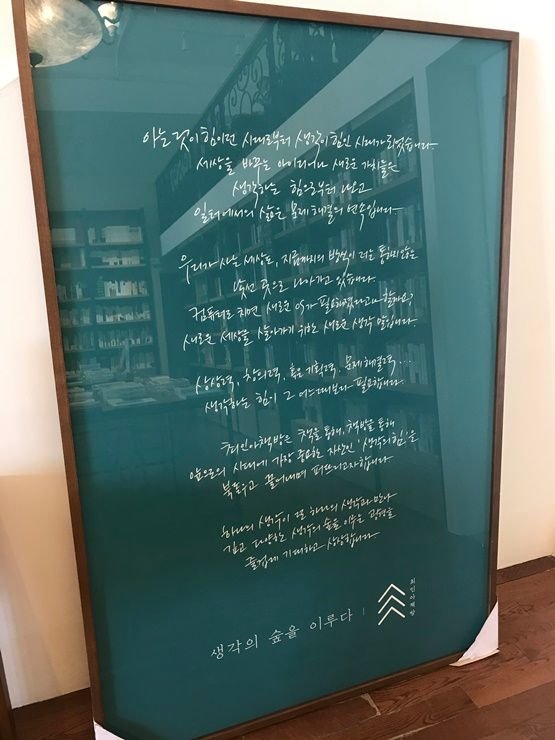 아는 것이 힘이던 시대로부터 생각이 힘인 시대가 되었습니다
세상을 바꾸는 아이디어나 새로운 가치들은
생각하는 힘으로부터 나오고
일터에서의 삶은 문제해결의 연속입니다.
우리가 사는 세상은, 지금까지의 방법이 더는 통하지 않는
낯선 곳으로 나아가고 있습니다.
컴퓨터로 치면 새로운 OS가 필요해졌다고나 할까요?
새로운 세상을 살아가기 위한 새로운 생각 말입니다.
상상력, 창의력, 혹은 기획력, 문제해결력...
생각하는 힘이 그 어느 때보다 필요합니다.
최인아책방은 책을 통해, 책방을 통해
앞으로의 시대에 가장 중요한 자산인 '생각의 힘'을
북돋우고 끌어내며 퍼뜨리고자 합니다.
하나의 생각이 또 하나의 생각과 만나
깊고 다양한 생각의 숲을 이루는 광경을
즐겁게 기대하고 상상합니다.
생각의 숲을 이루다 |
최인아책방